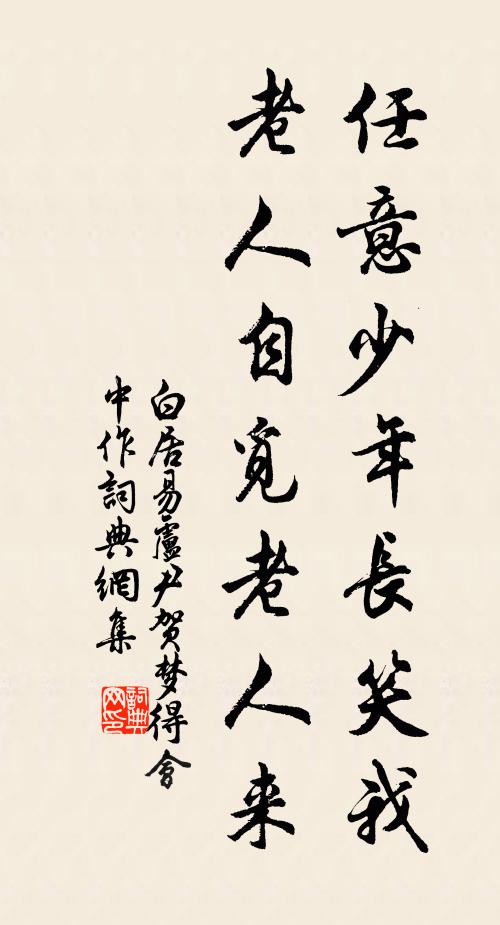 任意少年長笑我
老人自覓老人来
白居易盧尹贺梦得會
中作詞典網集
詞典網印